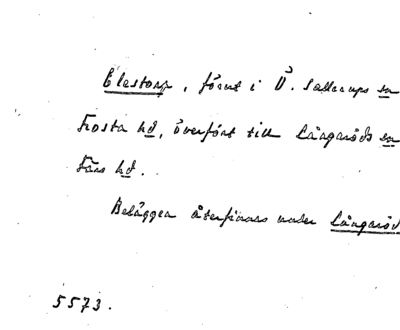 Elestorp, förut i Ö. Sallerups sn
Frosta hd, överfört till Långaröds sn
Färs hd.
Beläggen återfinnas under Långaröd
5573.